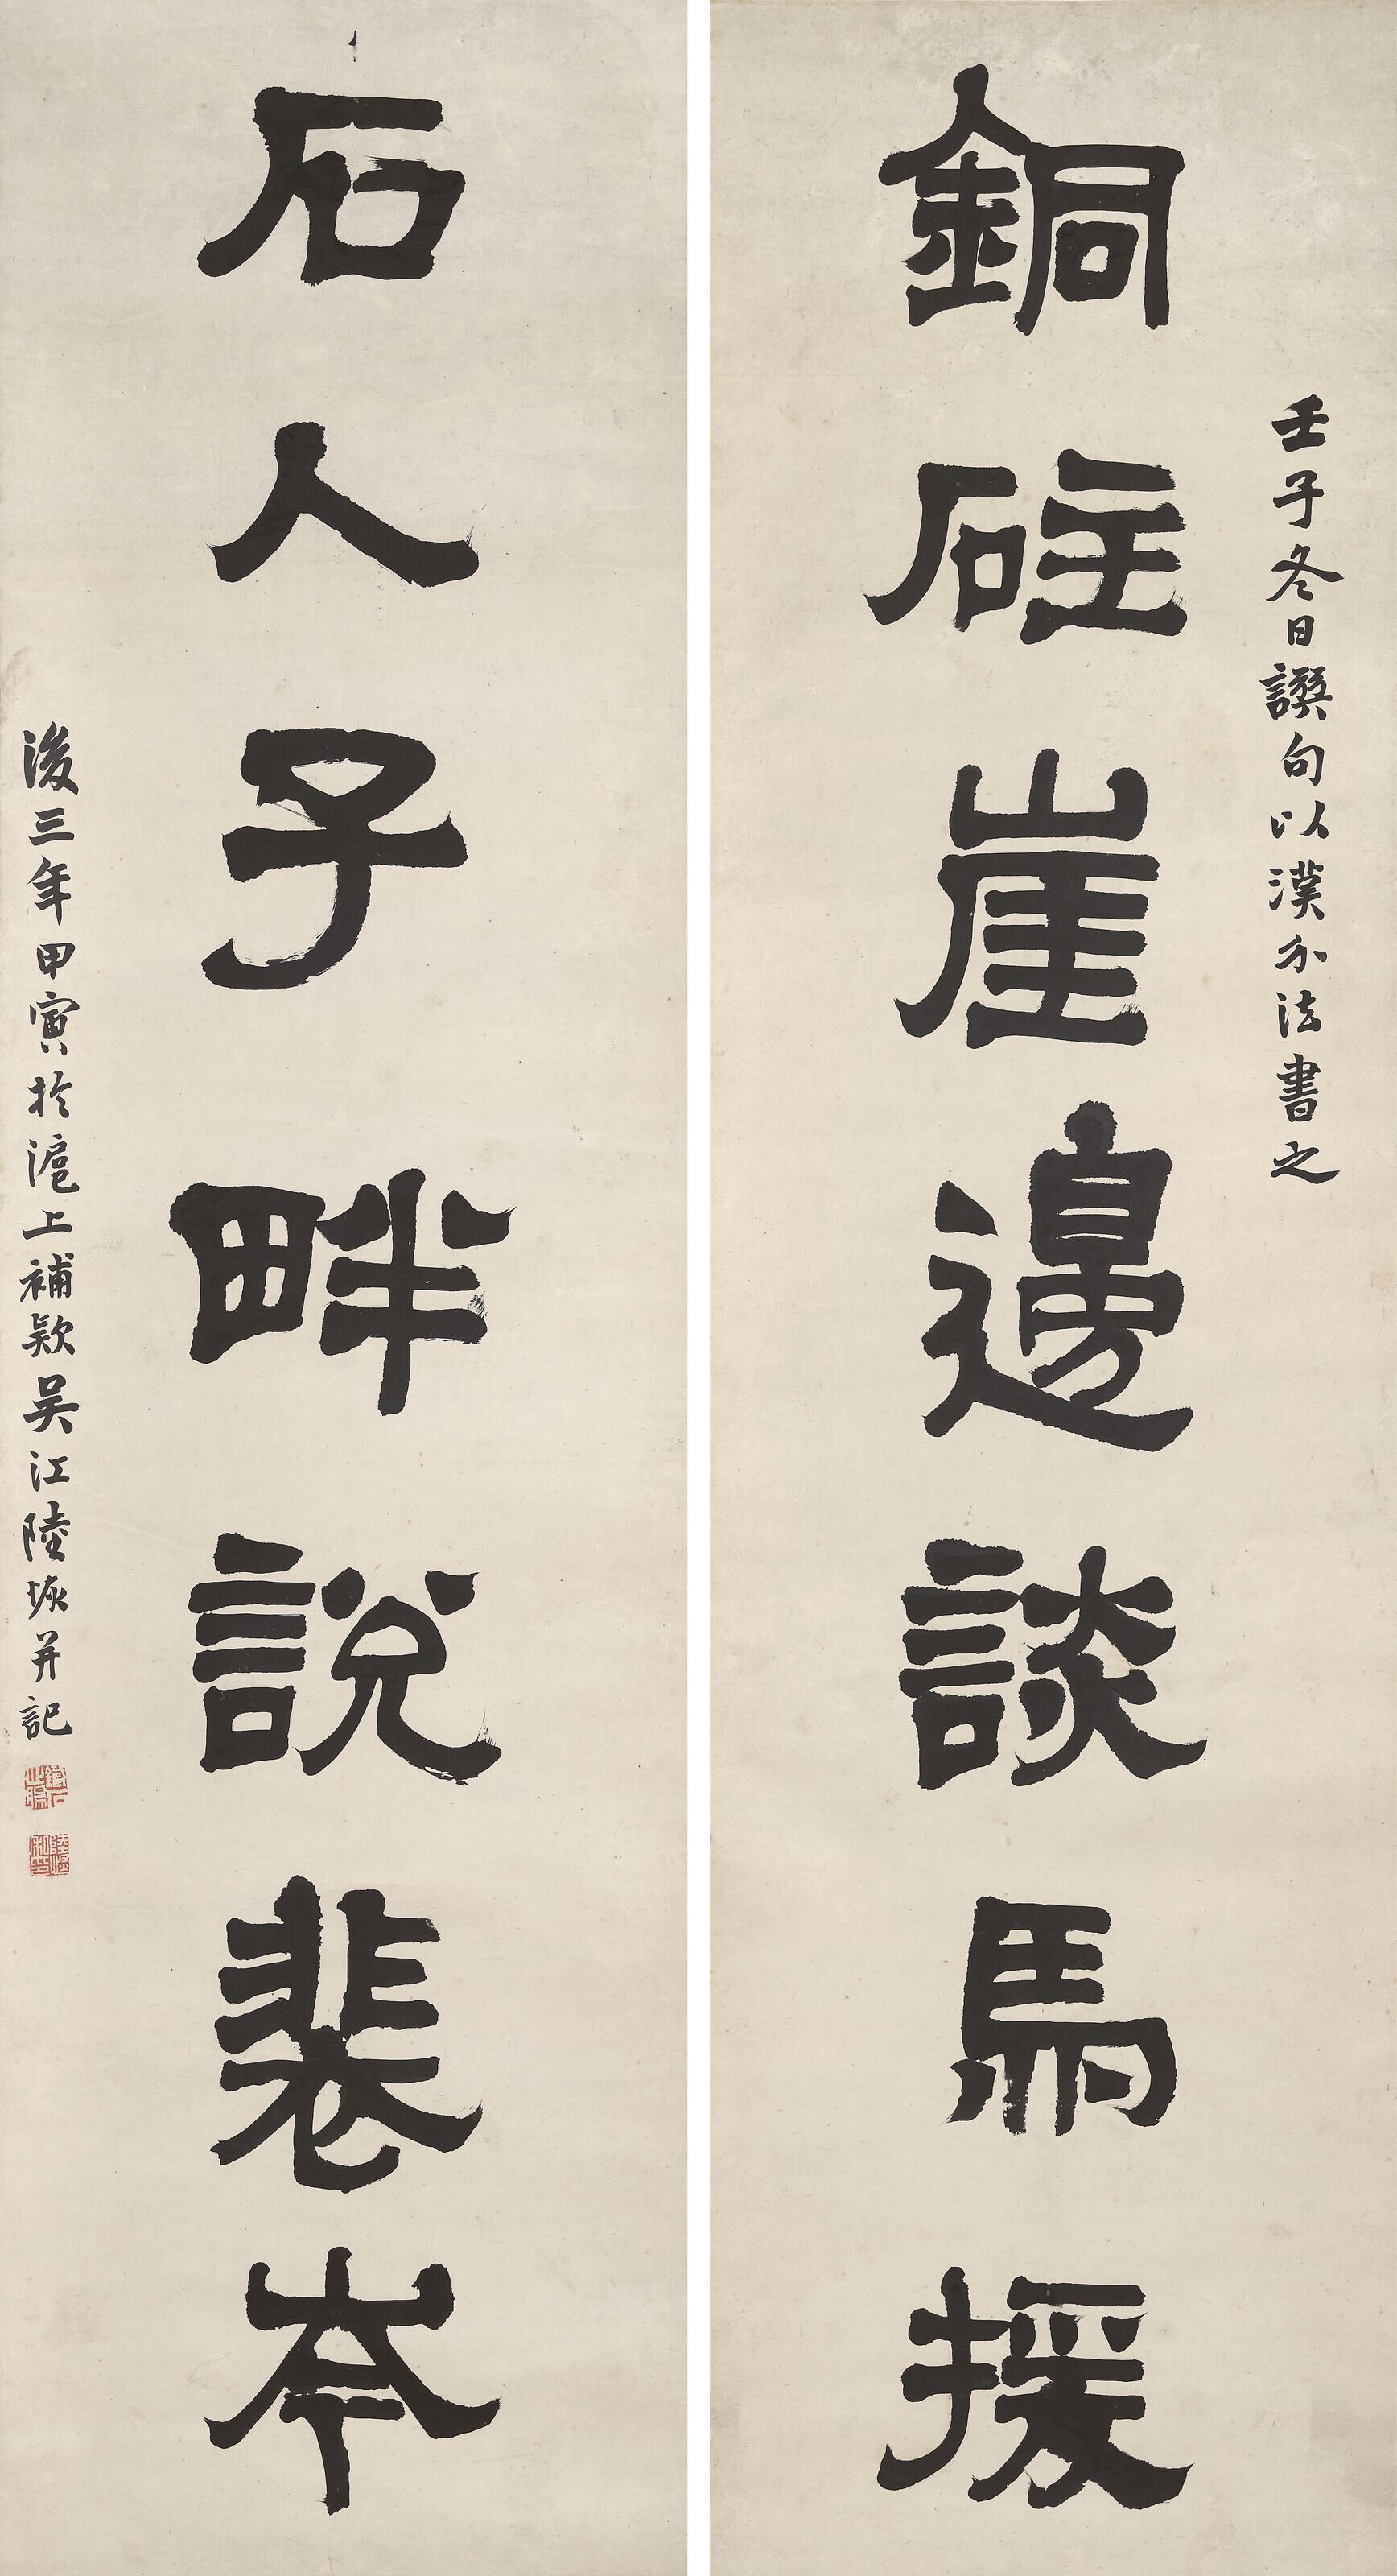 銅砫崖邊談馬援
壬子冬日譔句以漢分法書之
石人子畔說裴岑
後三年甲寅於滬上補款吴江陸恢并記